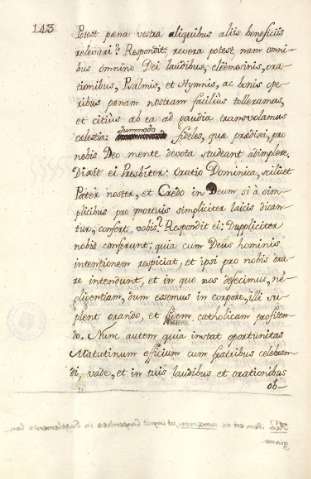 143
Potest pena vestra aliquibus aliis beneficiis
relevari? Respondit: revera potest nam omni-
bus omnino Dei laudibus, elemosinis, ora-
tionibus, Psalmis, et Hymnis, ac bonis ope-
ribus penam nostram facilius tolleramus,
et citius ab ea ad gaudia transvolamus
celestia: dummodo fideles, que predixi, pro
nobis Deo mente devota studeant adimplere.
Dixit ei Presbiter: Oratio Dominica, scilicet
Pater noster, et Credo in Deum si à sim-
plicibus pro mortuis simpliciter laicis dican-
tur, confert vobis? Respondit ei: Dupliciter
nobis conferunt; quia cum Deus hominis
intentionem respiciat, et ipsi pro nobis ora-
re intendunt, et in quo nos defecimus, ne-
gligentiam, dum essemus in corpore, illi sup-
plent orando, et fidem catholicam profiten-
do. Nunc autem quia instat oportunitas
Matutinum officium cum fratribus celebran-
di, vade, et in tuis laudibus et orationibus
ob-